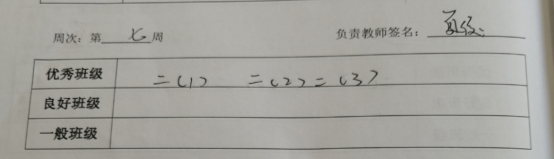 周次：第七周 负责教师签名：
优秀班级 二(1) 二(2) 二(3)
良好班级
一般班级